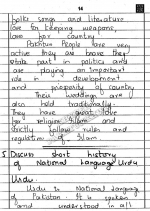 14
folk songs and literature.
love for keeping weapons,
love for country!
Pakhtun People are very
active they are brave they
take part in politics and
are playing an important
role in development
and prosperity of country
Their weddings are
also held traditionally.
They have great love
for religion Islam and
strictly follow rules and
regulation of Islam.
5 Discuss short history
of National Language Urdu
Urdu:
Urdu is National language
of Pakistan. It is spoken
and understood in all